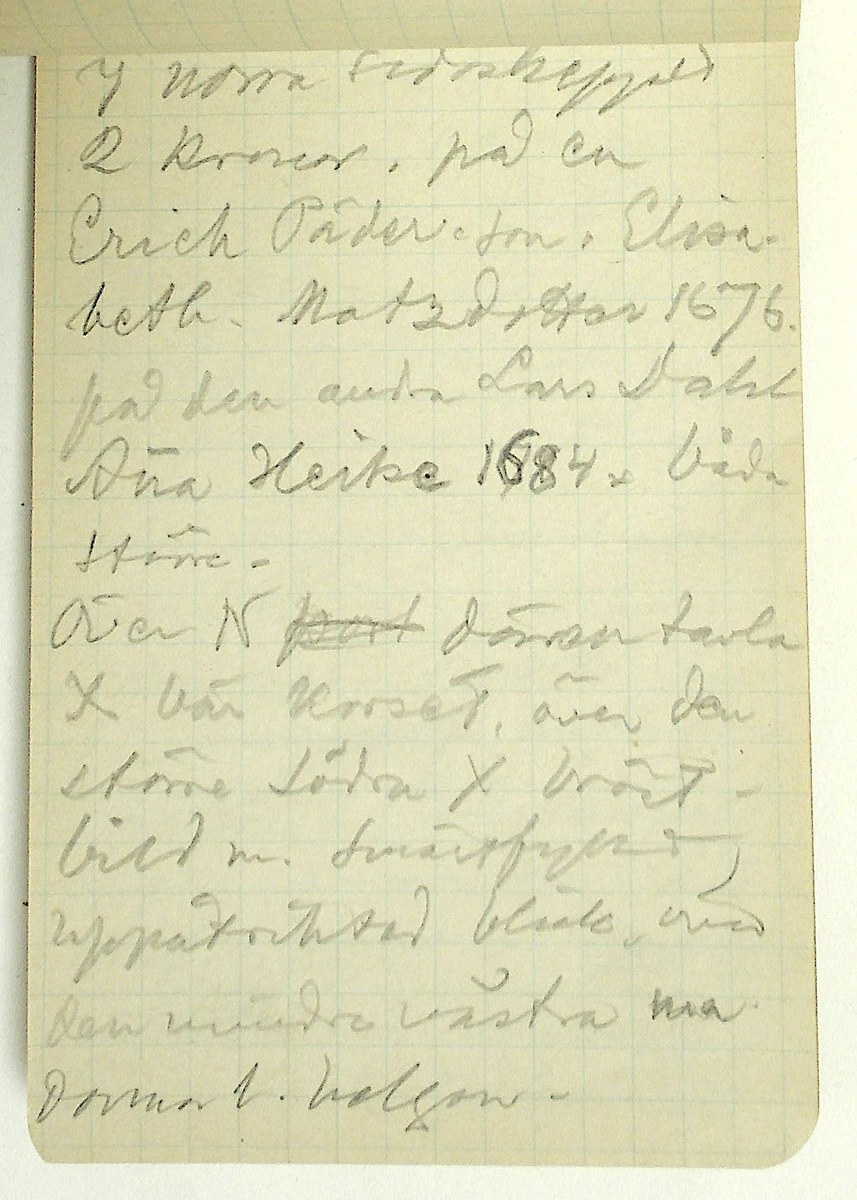 I norra sidoskeppet
2 kronor, på en
Erich Päder-son, Elisa-
beth. Matzdotter 1676.
på den andra Lars Dahl
Aña Heike 1684. båda
större.
Över N port dörren tavla
X bär korset, över den
större södra X bröst-
bild m. smärtfylld,
uppåtriktad blick, vid
den mindre västra ma-
donnan t. halgon.-